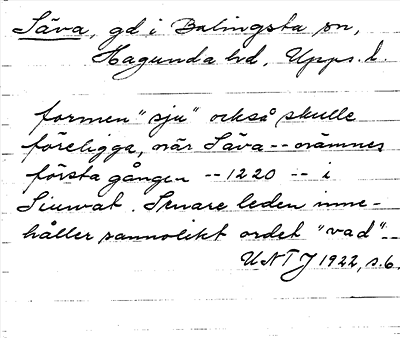 Säva, gd i Balingsta sn,
Hagunda hd, Upps. l.
formen "sju" också skulle
föreligga, när Säva -- nämnes
första gången -- 1220 -- i
Siuwat. Senare leden inne-
håller sannolikt ordet "vad" --
UNT J 1922, s. 6.